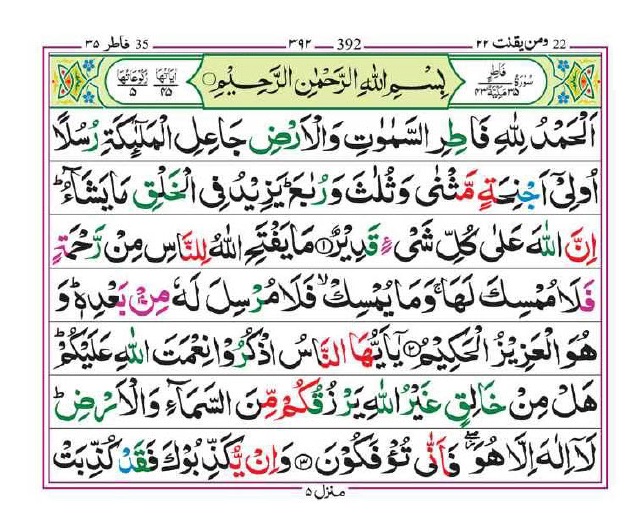 22 ومن یقنت ۲۲ 392 ۳۹۲ 35 فاطر ۳۵
سُوْرَةُ فَاطِرٍ ۳۵ مَكِّيَّةٌ ۴۳ بِسْمِ اللّٰهِ الرَّحْمٰنِ الرَّحِيْمِ اٰيَاتُهَا ۴۵ رُكُوْعَاتُهَا ۵
اَلْحَمْدُ لِلّٰهِ فَاطِرِ السَّمٰوٰتِ وَالْاَرْضِ جَاعِلِ الْمَلٰٓئِكَةِ رُسُلًا
اُولِيْۤ اَجْنِحَةٍ مَّثْنٰى وَثُلٰثَ وَرُبٰعَ ؕ يَزِيْدُ فِى الْخَلْقِ مَا يَشَآءُ ؕ
اِنَّ اللّٰهَ عَلٰى كُلِّ شَىْءٍ قَدِيْرٌ ﴿۱﴾ مَا يَفْتَحِ اللّٰهُ لِلنَّاسِ مِنْ رَّحْمَةٍ
فَلَا مُمْسِكَ لَهَا ۚ وَمَا يُمْسِكْ ۙ فَلَا مُرْسِلَ لَهٗ مِنْۢ بَعْدِهٖ ؕ وَ
هُوَ الْعَزِيْزُ الْحَكِيْمُ ﴿۲﴾ يٰۤاَيُّهَا النَّاسُ اذْكُرُوْا نِعْمَتَ اللّٰهِ عَلَيْكُمْ ؕ
هَلْ مِنْ خَالِقٍ غَيْرُ اللّٰهِ يَرْزُقُكُمْ مِّنَ السَّمَآءِ وَالْاَرْضِ ؕ
لَاۤ اِلٰهَ اِلَّا هُوَ ۖ فَاَنّٰى تُؤْفَكُوْنَ ﴿۳﴾ وَاِنْ يُّكَذِّبُوْكَ فَقَدْ كُذِّبَتْ
منزل ۵